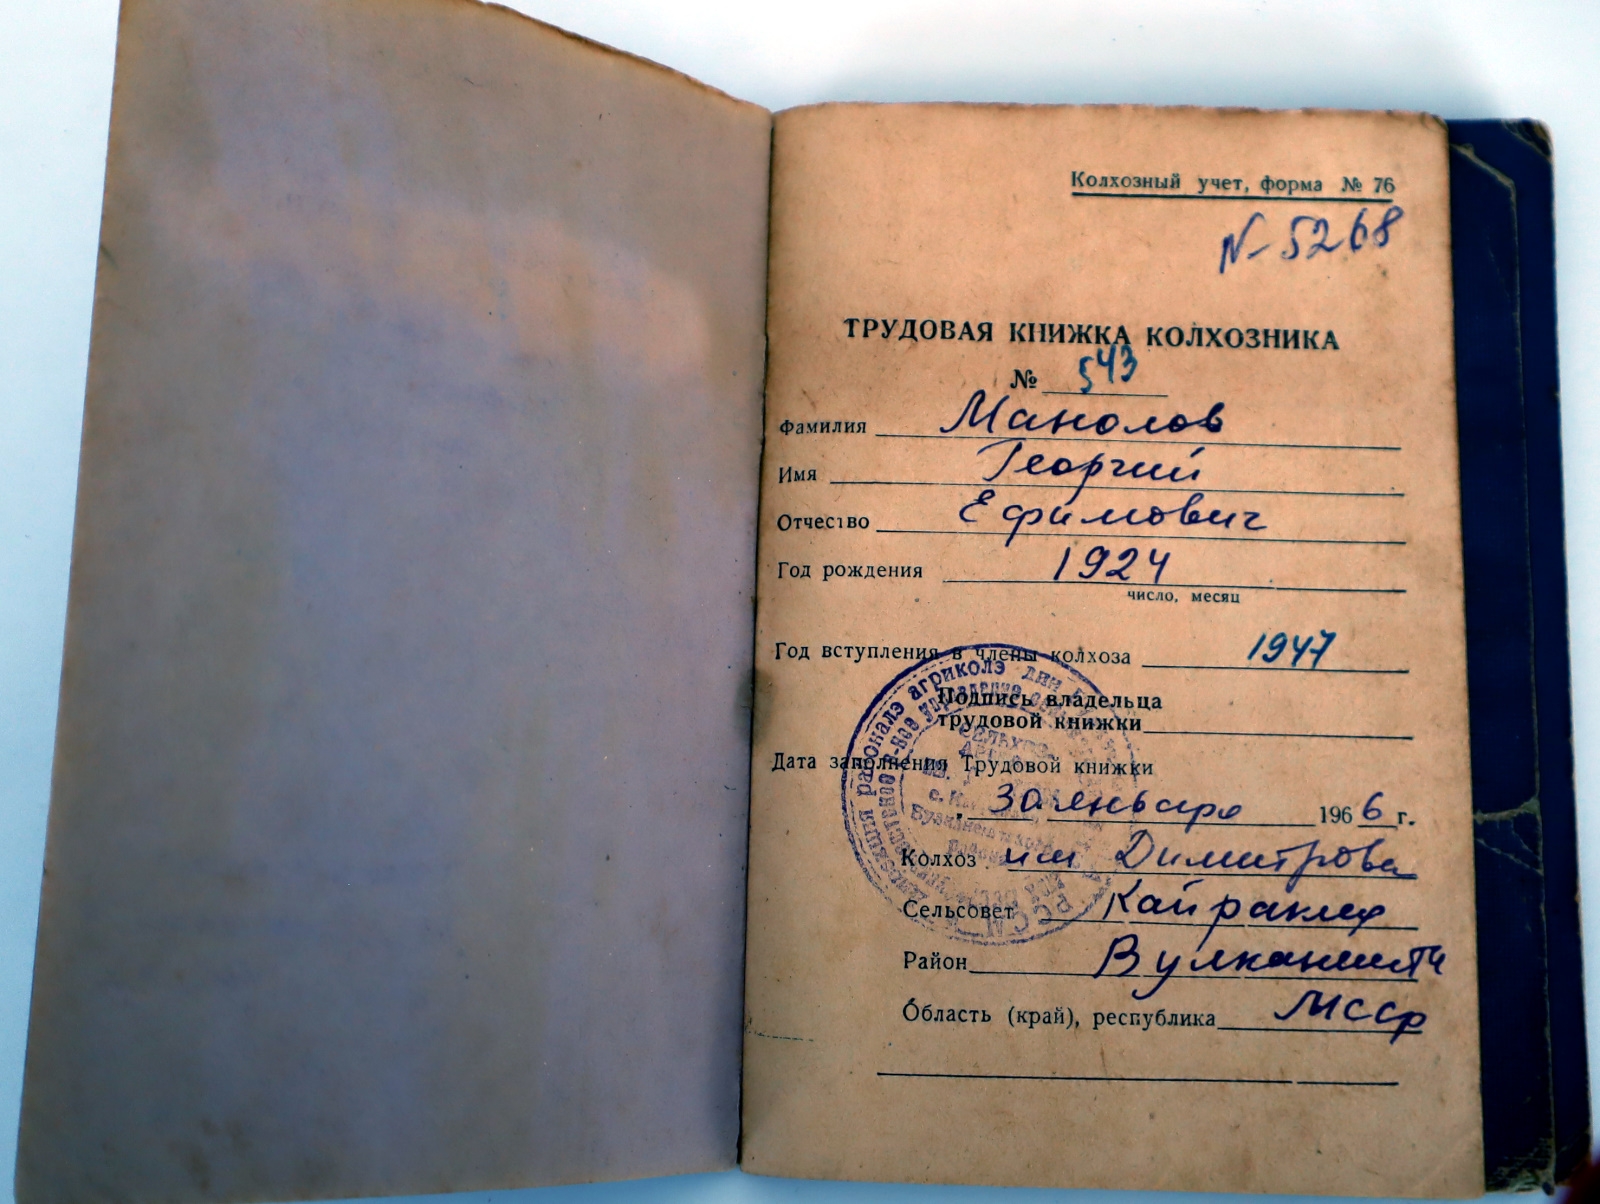 Колхозный учет, форма № 76
N- 5268
ТРУДОВАЯ КНИЖКА КОЛХОЗНИКА
№ 543
Фамилия Манолов
Имя Георгий
Отчество Ефимович
Год рождения 1924
число, месяц
Год вступления в члены колхоза 1947
Подпись владельца
трудовой книжки
Дата заполнения Трудовой книжки
30 января 1966 г.
Колхоз им Димитрова
Сельсовет Кайраклия
Район Вулканешты
Область (край), республика МССР
районалэ агриколэ дин
управление
РССМ